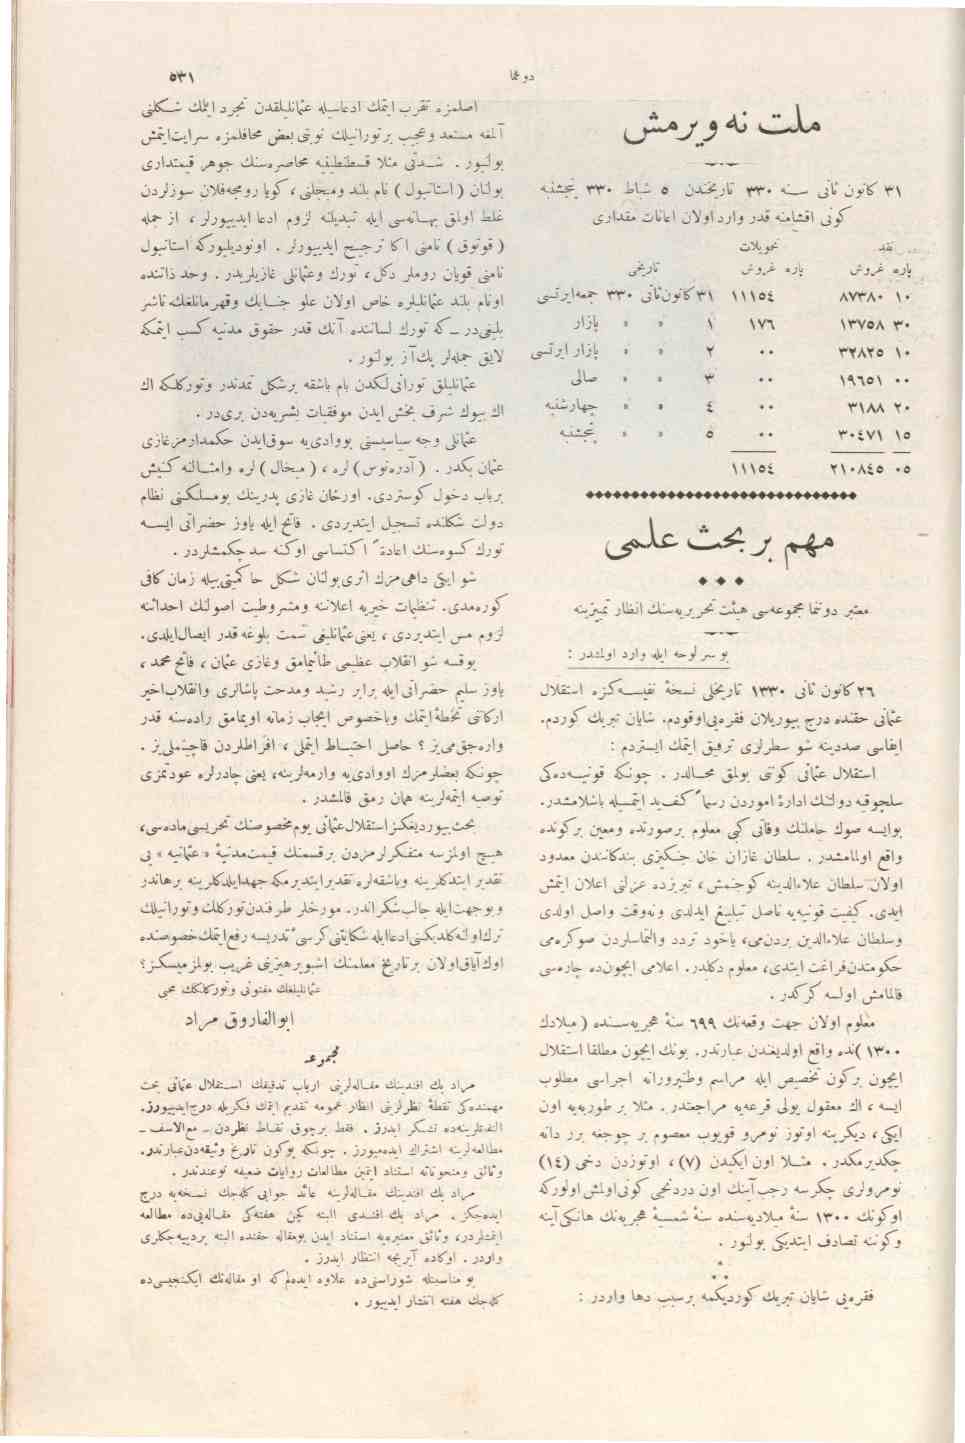 ٥٣١
دونما
ملت نه ويرمش
٣١ كانون ثانى سنه ٣٣٠ تاريخندن ٥ شباط ٣٣٠ پنجشنبه
كونى اقشامنه قدر وارد اولان اعانات مقدارى
نقد تحويلات
پاره غروش پاره غروش تاريخى
١٠ ٨٧٣٨٠ ١١١٥٤ ٣١ كانون ثانى ٣٣٠ جمعه ايرتسى
٣٠ ١٣٧٥٨ ١٧٦ ١ » » بازار
١٠ ٣٢٨٢٥ ٠٠ ٢ » » بازار ايرتسى
٠٠ ١٩٦٥١ ٠٠ ٣ » » صالى
٢٠ ٣١٨٨ ٠٠ ٤ » » چهارشنبه
١٥ ٣٠٤٧١ ٠٠ ٥ » » پنجشنبه
٠٥ ٢١٠٨٤٥ ١١١٥٤
مهم بر بحث علمى
معتبر دوننما مجموعه‌سى هيئت تحريريه‌سنك انظار تمييزينه
بو سرلوحه ايله وارد اولمشدر :
٢٦ كانون ثانى ١٣٣٠ تاريخلى نسخهٔ نفيسه‌كزه استقلال
عثمانى حقنده درج بيوريلان فقره‌يى اوقودم. شايان تبريك كوردم.
ايفاسى صددينه شو سطرلرى ترفيق ايتمك ايستردم :
استقلال عثمانى كونى بولمق محالدر . چونكه قونيه‌ده‌كى
سلجوقيه دولتك ادارهٔ اموردن رسماً كف‌يد ايتمسيله باشلامشدر.
بوايسه صوك حاملنك وفاتى كبى معلوم برصورتده ومعين بركونده
واقع اولمامشدر . سلطان غازان خان جنكيزى بندكانندن معدود
اولان سلطان علاءالدينه كوجنمش ، تبريزده عزلنى اعلان ايتمش
ايدى. كيفيت قونيه‌يه ناصل تبليغ ايدلدى ونه‌وقت واصل اولدى
وسلطان علاءالدين بردن‌مى، ياخود تردد والتماسلردن صوكره‌مى
حكومتدن فراغت ايتدى، معلوم دكلدر. اعلامى ايچون ده چاره‌سى
قالمامش اولسه كركدر .
معلوم اولان جهت وقعه‌نك ٦٩٩ سنهٔ هجريه‌سنده ( ميلادك
١٣٠٠ )نده واقع اولديغندن عبارتدر. بونك ايچون مطلقا استقلال
ايچون بركون تخصيص ايله مراسم وطنپرورانه اجراسى مطلوب
ايسه ، اك معقول يولى قرعه‌يه مراجعتدر. مثلا بر طوربه‌يه اون
ايكى، ديكرينه اوتوز نومرو قويوب معصوم بر چوجغه برر دانه
چكديرمكدر . مثلا اون ايكيدن (٧) ، اوتوزدن دخى (١٤)
نومرولرى چكرسه رجب آينك اون دردنجى كونى‌اولمش اولورکه
اوكونك ١٣٠٠ سنهٔ ميلاديه‌سنده سنهٔ شمسيهٔ هجريه‌نك هانكى‌آينه
وكوننه تصادف ايتديكى بولنور .
فقره‌يى شايان تبريك كورديكمه برسبب دها واردر :
اصلمزه تقرب ايتمك ادعاسيله عثمانليلقدن تجرد ايتمك شكلنى
آلمغه مستعد وعجيب برتورانيلك نوبتى بعض محافلمزه سرايت‌ايتمش
بولنيور . شدتى مثلا قسطنطينيه محاصره‌سنك جوهر قيمتدارى
بولنان ( استانبول ) نام بلند ومبجلنى ، كويا رومجه‌فلان سوزلردن
غلط اولمق بهانه‌سى ايله تبديلنه لزوم ادعا ايديیورلر ، از جمله
( قوتوق ) نامنى اكا ترجيح ايديیورلر . اونوديليوركه استانبول
نامنى قويان روملر دكل ، تورك وعثمانلى غازيلريدر . وحد ذاتنده
اونام بلند عثمانليلره خاص اولان علو جنابك وقهرمانلغك ناشر
بليغى‌در ـ كه تورك لساننده آنك قدر حقوق مدنيه كسب ايتمكه
لايق جمله‌لر پك‌آز بولنور .
عثمانليلق تورانى‌لكدن بام باشقه برشكل تمدندر وتوركلكه اك
اك بيوك شرف بخش ايدن موفقيات بشريه‌دن برى‌در .
عثمانلى وجه سياسيسنى بووادى‌يه سوق‌ايدن حكمدارمز غازى
عثمان بكدر . ( آدره‌نوس) لره ، ( ميخال ) لره وامثالنه كنيش
برباب دخول كوستردى. اورخان غازى پدرينك بومسلكنى نظام
دولت شكلنده تسجيل ايتديردى . فاتح ايله ياوز حضراتى ايسه
تورك كسوه‌سنك اعادهٔ اكتساسى اوكنه سد چكمشلردر .
شو ايكى داهى‌مزك اثرى‌بولنان شكل حاكميتى‌بيله زمان كافى
كوره‌مدى. تنظيمات خيريه اعلاننه ومشروطيت اصولنك احداثنه
لزوم مس ايتديردى ، يعنى عثمانليغى سمت بلوغه قدر ايصال ايلدى.
يوقسه شو انقلاب عظيمى طانيمامق وغازى عثمان ، فاتح محمد ،
ياوز سليم حضراتى ايله برابر رشيد ومدحت پاشالرى وانقلاب اخير
اركاننى تخطئهٔ ايتمك وباخصوص ايجاب زمانه اويمامق راده‌سنه قدر
واره‌جق‌مى‌يز ؟ حاصل احتياط ايتملى ، افراطلردن قاچينملى‌يز .
چونكه بعضلرمزك اووادى‌يه وارمه‌لرينه، يعنى چادرلره عودتمزى
توصيه ايتمه‌لرينه همان رمق قالمشدر .
بحث بيورديغكز استقلال عثمانى يوم مخصوصنك تحريسى‌ماده‌سى،
هيچ اولمزسه متفكرلرمزدن برقسمنك قيمت‌مدنيهٔ « عثمانيه » يى
تقدير ايتدكلرينه وباشقه‌لره تقدير ايتديرمكه جهد ايلدكلرينه برهاندر
وبوجهت ايله جالب شكراندر. مورخلر طرفندن توركلك وتورانيلك
ترك اولنه‌كلديكنى ادعاايله شكايتنى كرسئ تدريسه رفع ايتمك خصوصنده
اوك آياق اولان برتاريخ معلمنك اشبو پرهيزينى غريب بولمزميسكز؟
عثمانليلغك مفتونى وتوركلكك محبى
ابوالفاروق مراد
مجموعه
مراد بك افندينك مقاله‌لرينى ارباب تدقيقك استقلال عثمانى بحث
مهمنده‌كى نقطهٔ نظرلرينى انظار عمومه تقديم ايتمك فكريله درج‌ايديیورز.
التفاتلرينه‌ده تشكر ايدرز . فقط برچوق نقاط نظردن ـ مع‌الاسف ـ
مطالعه‌لرينه اشتراك ايده‌ميورز . چونكه بوكون تاريخ وثيقه‌دن‌عبارتدر.
وثائق ومنحوتاته استناد ايتمين مطالعات روايات ضعيفه نوعندندر .
مراد بك افندينك مقاله‌لرينه عائد جوابى كله‌جك نسخه‌يه درج
ايده‌جكز . مراد بك افندى البته كچن هفته‌كى مقاله‌يى‌ده مطالعه
ايتمشلردر، وثائق معتبره‌يه استناد ايدن بومقاله حقنده البته برديیه‌جكلرى
واردر . اوكاده آيريجه انتظار ايدرز .
بو مناسبتله شوراسنى‌ده علاوه ايده‌لم كه او مقاله‌نك ايكنجيسى‌ده
كله‌جك هفته انتشار ايديیور .